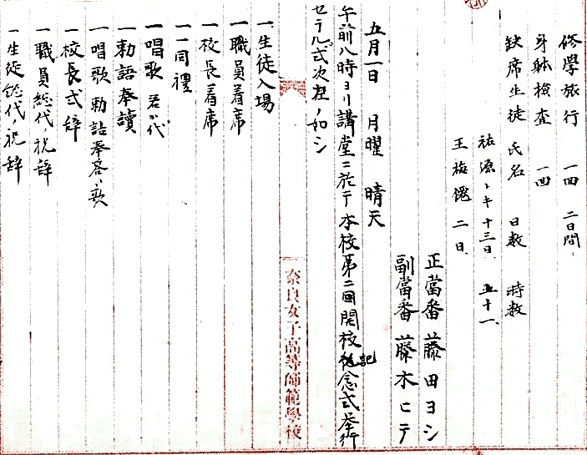 修學旅行 一回 二日間、
身體檢査 一回
缺席生徒 氏名 日数 時数
祐源トキ 十三日、 五十一、
王梅 二日、
正當番 藤田ヨシ
副當番 藤木ヒデ
五月一日 月曜 晴天
午前八時ヨリ講堂ニ於テ本校第二回開校記念式挙行
セラル、式次左ノ如シ
奈良女子高等師範學校
一、生徒入場
一職員着席
一校長着席
一一同禮
一唱歌 君が代
一勅語奉讀
一唱歌 勅語奉答ノ歌
一校長式辞
一職員総代ノ祝辞
一生徒総代ノ祝辞